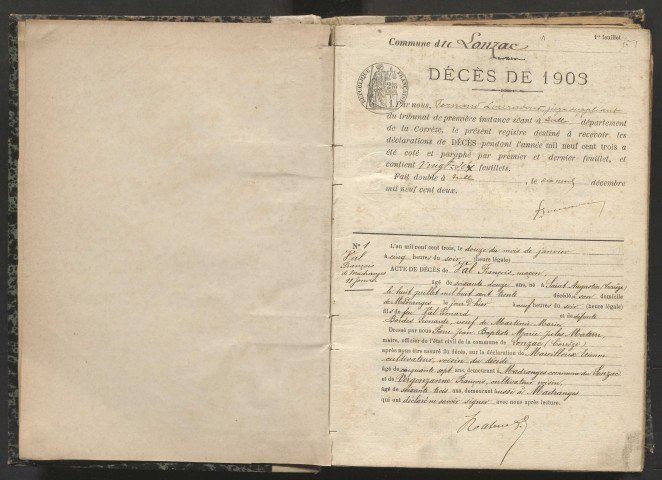 Commune du Lonzac
1er feuillet
DÉCÈS DE 1903
RÉPUBLIQUE FRANÇAISE
Par nous, Fernand
du tribunal de première instance séant à Tulle département
de la Corrèze, le présent registre destiné à recevoir les
déclarations de DÉCÈS pendant l'année mil neuf cent trois a
été coté et paraphé par premier et dernier feuillet, et
contient Vingt-dix feuillets.
Fait double à Tulle, le décembre
mil neuf cent deux.
N° 1
Val
François
à Madranges
11 janvier
L'an mil neuf cent trois, le douze du mois de janvier
à cinq heures du soir (heure légale)
ACTE DE DÉCÈS de Val François, maçon
âgé de soixante douze ans, né à Saint Augustin Corrèze
le huit juillet mil huit cent trente décédé à son domicile
de Madranges le jour d'hier à neuf heures du soir (heure légale)
fils de feu Val Léonard et de défunte
Bordes Léonarde, veuf de Martinie Marie
Dressé par nous Pierre Jean Baptiste Marie Jules
maire, officier de l'état civil de la commune de Lonzac (Corrèze)
après nous être assuré du décès, sur la déclaration de Marcilloux Etienne
cultivateur, voisin du décédé,
âgé de cinquante sept ans, demeurant à Madranges commune du Lonzac
et de François, cultivateur voisin,
âgé de soixante trois ans, demeurant aussi à Madranges
qui ont déclaré ne savoir signer avec nous après lecture.